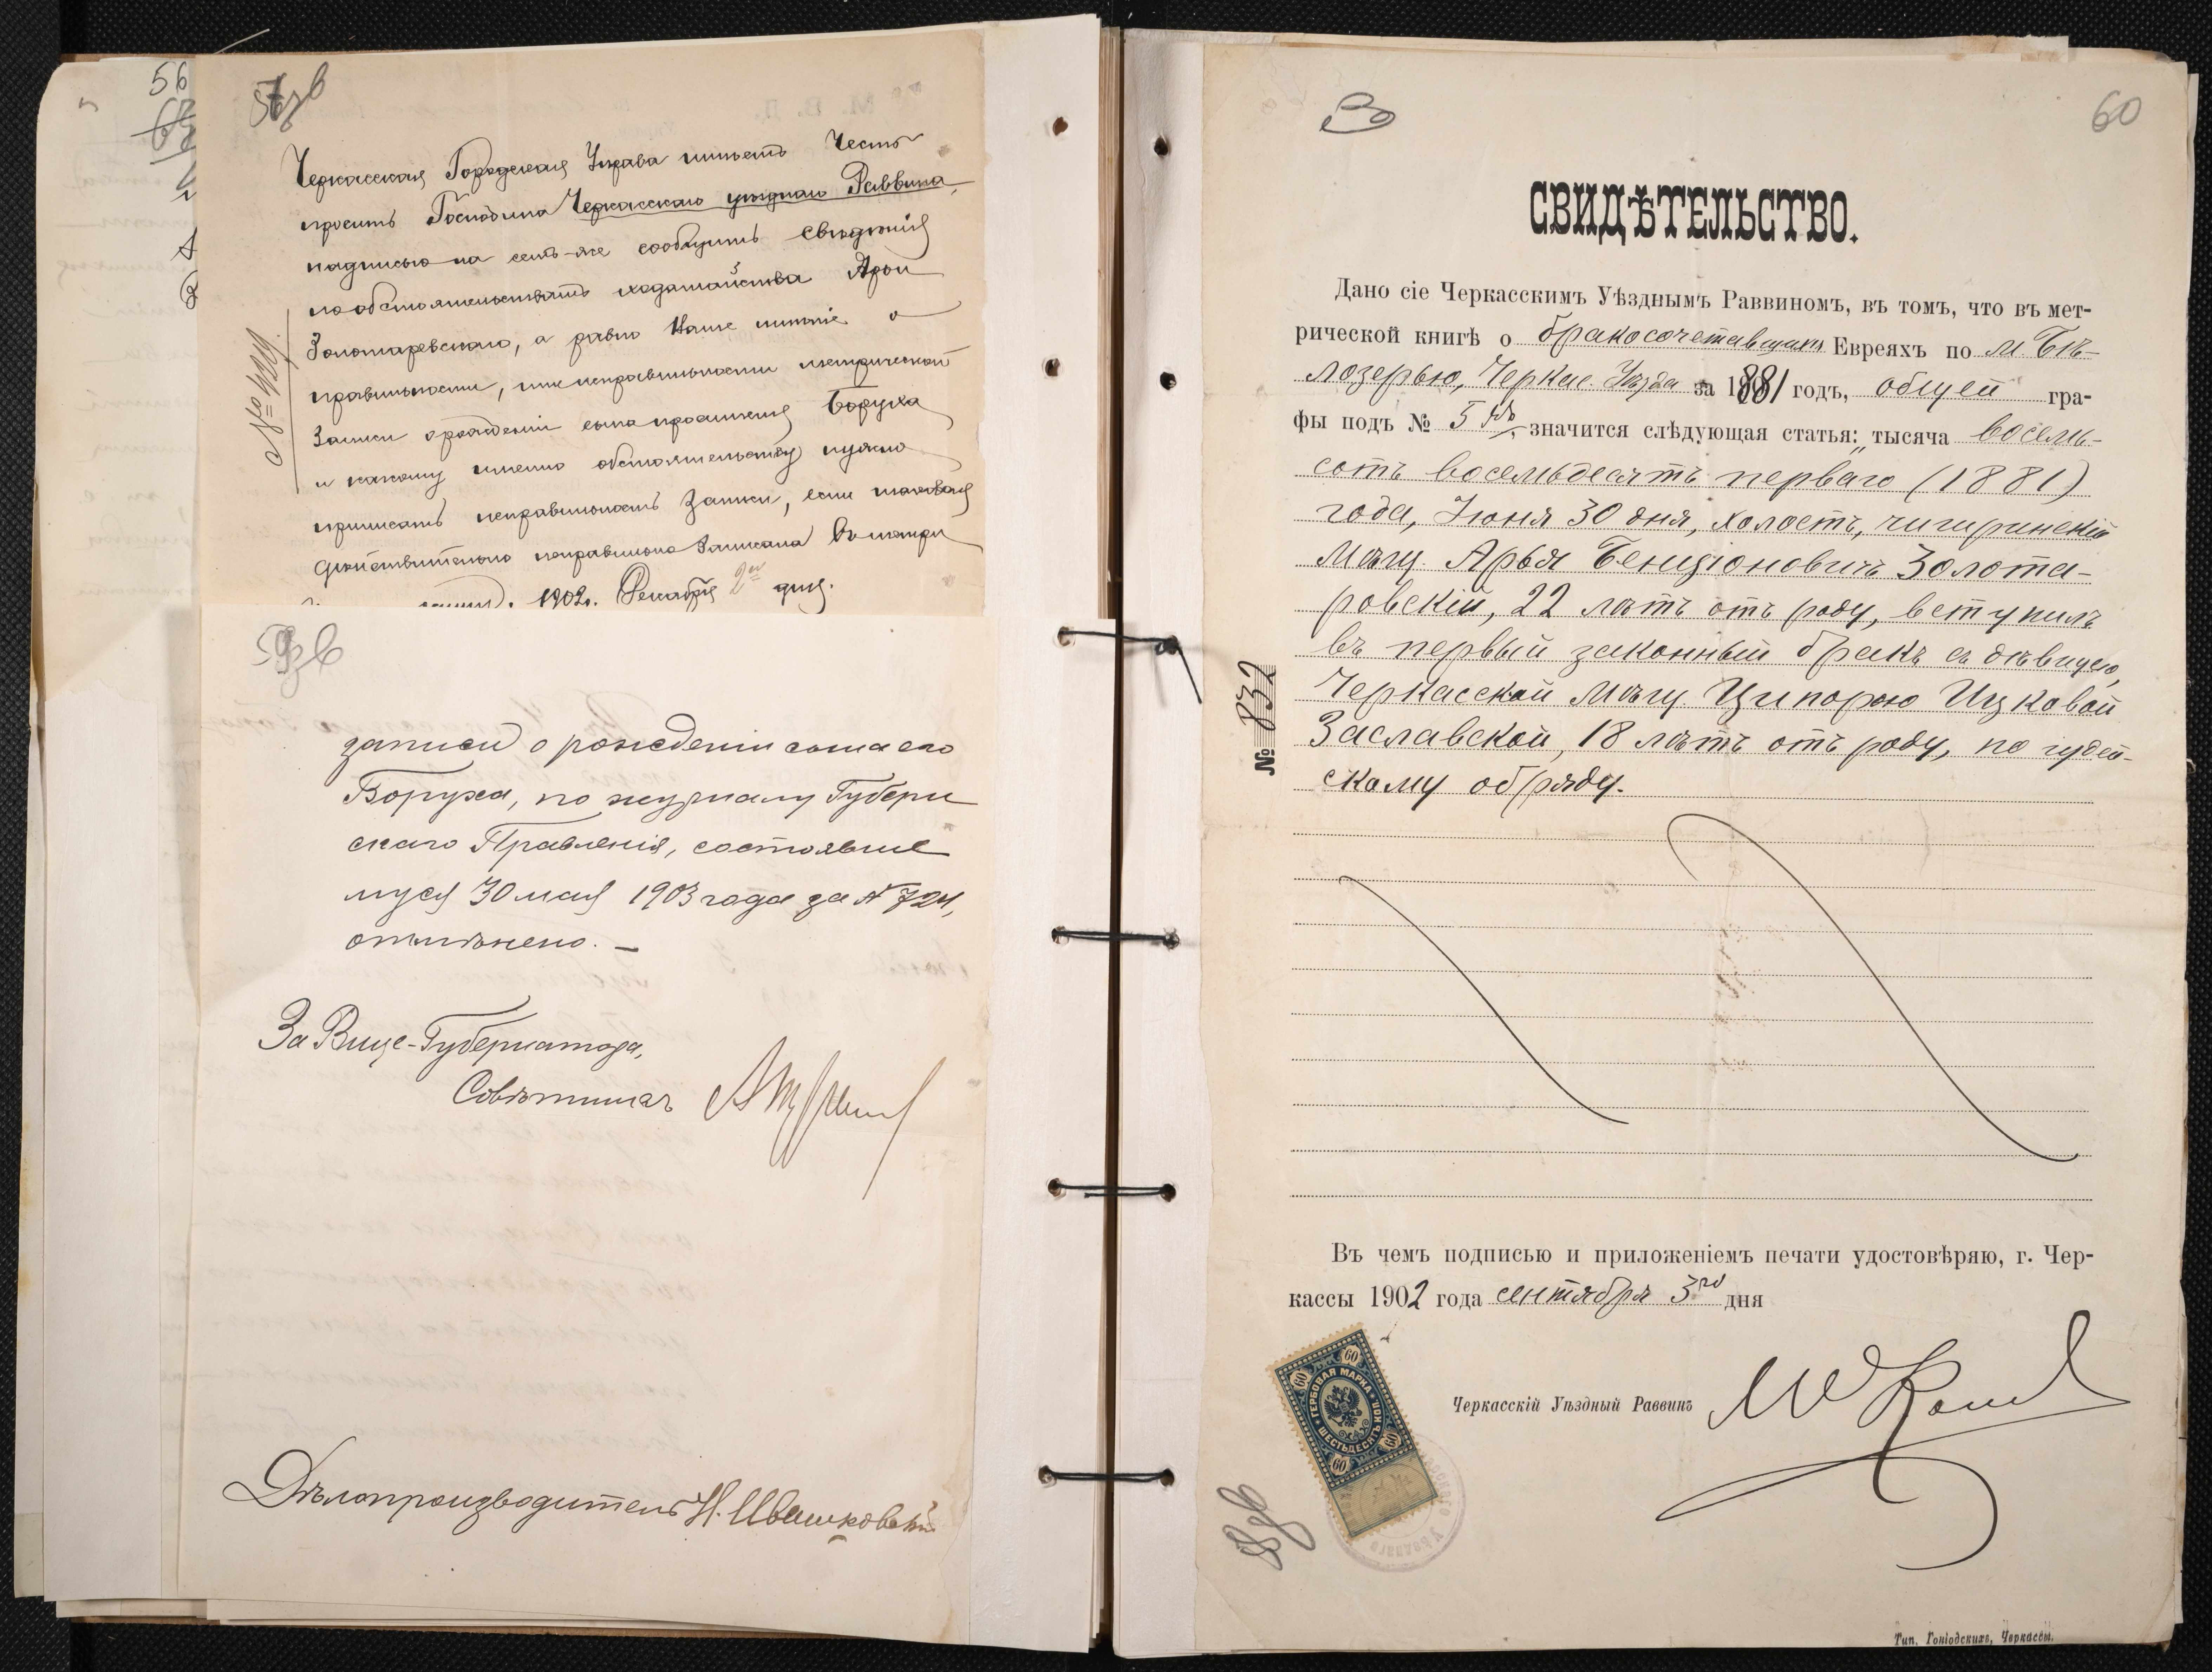 56
57зв
Черкасская Городская Управа имѣетъ честь
просить Господина Черкасскаго уѣзднаго Раввина,
надписью на семъ-же сообщить свѣдѣнія
по обстоятельствамъ ходатайства Арон
Золотаревскаго, а равно Ваше мнѣніе о
правильности, или неправильности метрической
записи о рожденіи сына просителя Боруха
и какому именно обстоятельству нужно
приписать неправильность записи, если таковая
дѣйствительно неправильно записана въ метри
1902 г. Декабря 2 дня.
№ 4994
записи о рожденіи сына его
Боруха, по журналу Губерн
скаго Правленія, состоявше
муся 30 мая 1903 года за № 724,
отмѣнено. —
За Вице-Губернатора,
Совѣтникъ
Дѣлопроизводитель Н. Ивашковскій
60
СВИДѢТЕЛЬСТВО.
Дано сіе Черкасскимъ Уѣзднымъ Раввиномъ, въ томъ, что въ мет-
рической книгѣ о бракосочетавшихся Евреяхъ по м. Бѣ-
лозерью, Черкас. Уѣзда за 1881 годъ, общей гра-
фы подъ № 5 значится слѣдующая статья: „тысяча восемь-
сотъ восемьдесятъ перваго (1881)
года, Іюня 30 дня, холостъ, чигиринскій
мѣщ. Арья Бенціоновичъ Золота-
ровскій, 22 лѣтъ отъ роду, вступилъ
въ первый законный бракъ съ дѣвицею,
Черкасской мѣщ. Ципорою Ицковой
Заславской, 18 лѣтъ отъ роду, по іудей-
скому обряду.
№ 832
Въ чемъ подписью и приложеніемъ печати удостовѣряю, г. Чер-
кассы 1902 года сентября 3го дня
Черкасскій Уѣздный Раввинъ
ГЕРБОВАЯ МАРКА
ШЕСТЬДЕСЯТЪ КОП.
60
60
60
60
Тип. Гоніодскихъ, Черкассы.